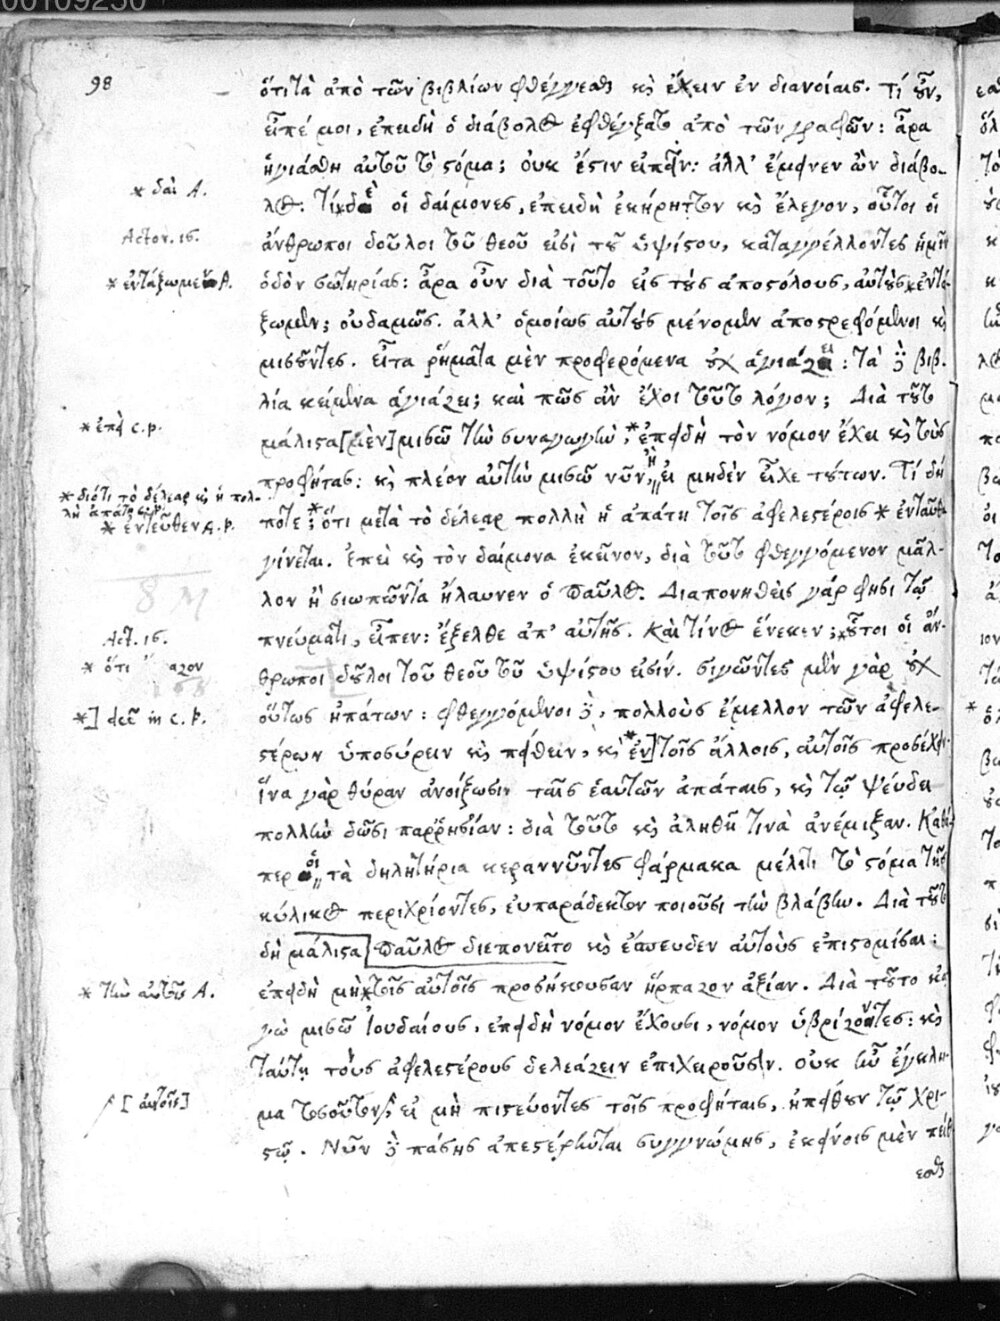 00109250
98
ὅτι τὰ ἀπὸ τῶν βιβλίων φθέγγεσθαι καὶ ἔχειν ἐν διανοίαις. Τί οὖν,
εἶπέ μοι, ἐπειδὴ ὁ διάβολος ἐφθέγξατο ἀπὸ τῶν γραφῶν: ἆρα
ἡγιάσθη αὐτοῦ τὸ στόμα; οὐκ ἔστιν εἰπεῖν: ἀλλ' ἔμεινεν ὢν διάβο-
* δαὶ A.
λος. Τί * δὲ οἱ δαίμονες, ἐπειδὴ ἐκήρυττον καὶ ἔλεγον, οὗτοι οἱ
Actor. 16.
ἄνθρωποι δοῦλοι τοῦ θεοῦ εἰσὶ τοῦ ὑψίστου, καταγγέλλοντες ἡμῖν
* ἐντάξωμεν A.
ὁδὸν σωτηρίας: ἆρα οὖν διὰ τοῦτο εἰς τοὺς ἀποστόλους, αὐτοὺς * ἐντά-
ξωμεν; οὐδαμῶς. ἀλλ' ὁμοίως αὐτοὺς μένομεν ἀποστρεφόμενοι καὶ
μισοῦντες. Εἶτα ῥήματα μὲν προφερόμενα οὐχ ἁγιάζει: Τὰ δὲ βιβ-
λία κείμενα ἁγιάζει; καὶ πῶς ἂν ἔχοι τοῦτο λόγον; Διὰ τοῦτο
* ἐπεὶ c.p.
μάλιστα [μὲν] μισῶ τὴν συναγωγὴν, * ἐπειδὴ τὸν νόμον ἔχει καὶ τοὺς
προφήτας: καὶ πλέον αὐτὴν μισῶ νῦν, ἢ εἰ μηδὲν εἶχε τούτων. Τί δή
* διότι τὸ δέλεαρ καὶ ἡ πολ-
λὴ ἀπάτη c.p.
* ἐντεῦθεν c.p.
ποτε; * ὅτι μετὰ τὸ δέλεαρ πολλὴ ἡ ἀπάτη τοῖς ἀφελεστέροις * ἐνταῦθα
γίνεται. Ἐπεὶ καὶ τὸν δαίμονα ἐκεῖνον, διὰ τοῦτο φθεγγόμενον μᾶλ-
λον ἢ σιωπῶντα ἤλαυνεν ὁ Παῦλος. Διαπονηθεὶς γάρ φησι τῷ
Act. 16.
πνεύματι, εἶπεν: ἔξελθε ἀπ' αὐτῆς. Καὶ τίνος ἕνεκεν; * οὗτοι οἱ ἄν-
* ὅτι
θρωποι δοῦλοι τοῦ θεοῦ τοῦ ὑψίστου εἰσίν. σιγῶντες μὲν γὰρ οὐχ
*] deē in c.p.
οὕτως ἠπάτων: φθεγγόμενοι δὲ, πολλοὺς ἔμελλον τῶν ἀφελε-
στέρων ὑποσύρειν καὶ πείθειν, καὶ * ἐν] τοῖς ἄλλοις, αὐτοῖς προσέχειν.
ἵνα γὰρ θύραν ἀνοίξωσιν ταῖς ἑαυτῶν ἀπάταις, καὶ τῷ ψεύδει
πολλὴν δῶσι παρρησίαν: διὰ τοῦτο καὶ ἀληθῆ τινὰ ἀνέμιξαν. Καθά-
περ οἱ τὰ δηλητήρια κεραννῦντες φάρμακα μέλιτι τὸ στόμα τῆς
κύλικος περιχρίοντες, εὐπαράδεκτον ποιοῦσι τὴν βλάβην. Διὰ τοῦτο
δὴ μάλιστα] Παῦλος διεπονεῖτο καὶ ἔσπευδεν αὐτοὺς ἐπιστομίσαι:
* τὴν αὐτοῖς A.
ἐπειδὴ μὴ * τοῖς αὐτοῖς προσήκουσαν ἥρπαζον ἀξίαν. Διὰ τοῦτο κἀ-
γὼ μισῶ Ἰουδαίους, ἐπειδὴ νόμον ἔχουσι, νόμον ὑβρίζοντες: καὶ
ταύτῃ τοὺς ἀφελεστέρους δελεάζειν ἐπιχειροῦσιν. οὐκ ἦν ἔγκλη-
/ [αὐτοῖς]
μα τοσοῦτον, εἰ μὴ πιστεύοντες τοῖς προφήταις, ἠπείθουν τῷ Χρι-
στῷ. Νῦν δὲ πάσης ἀπεστέρηνται συγγνώμης, ἐκείνοις μὲν πείθ-
εσθαι